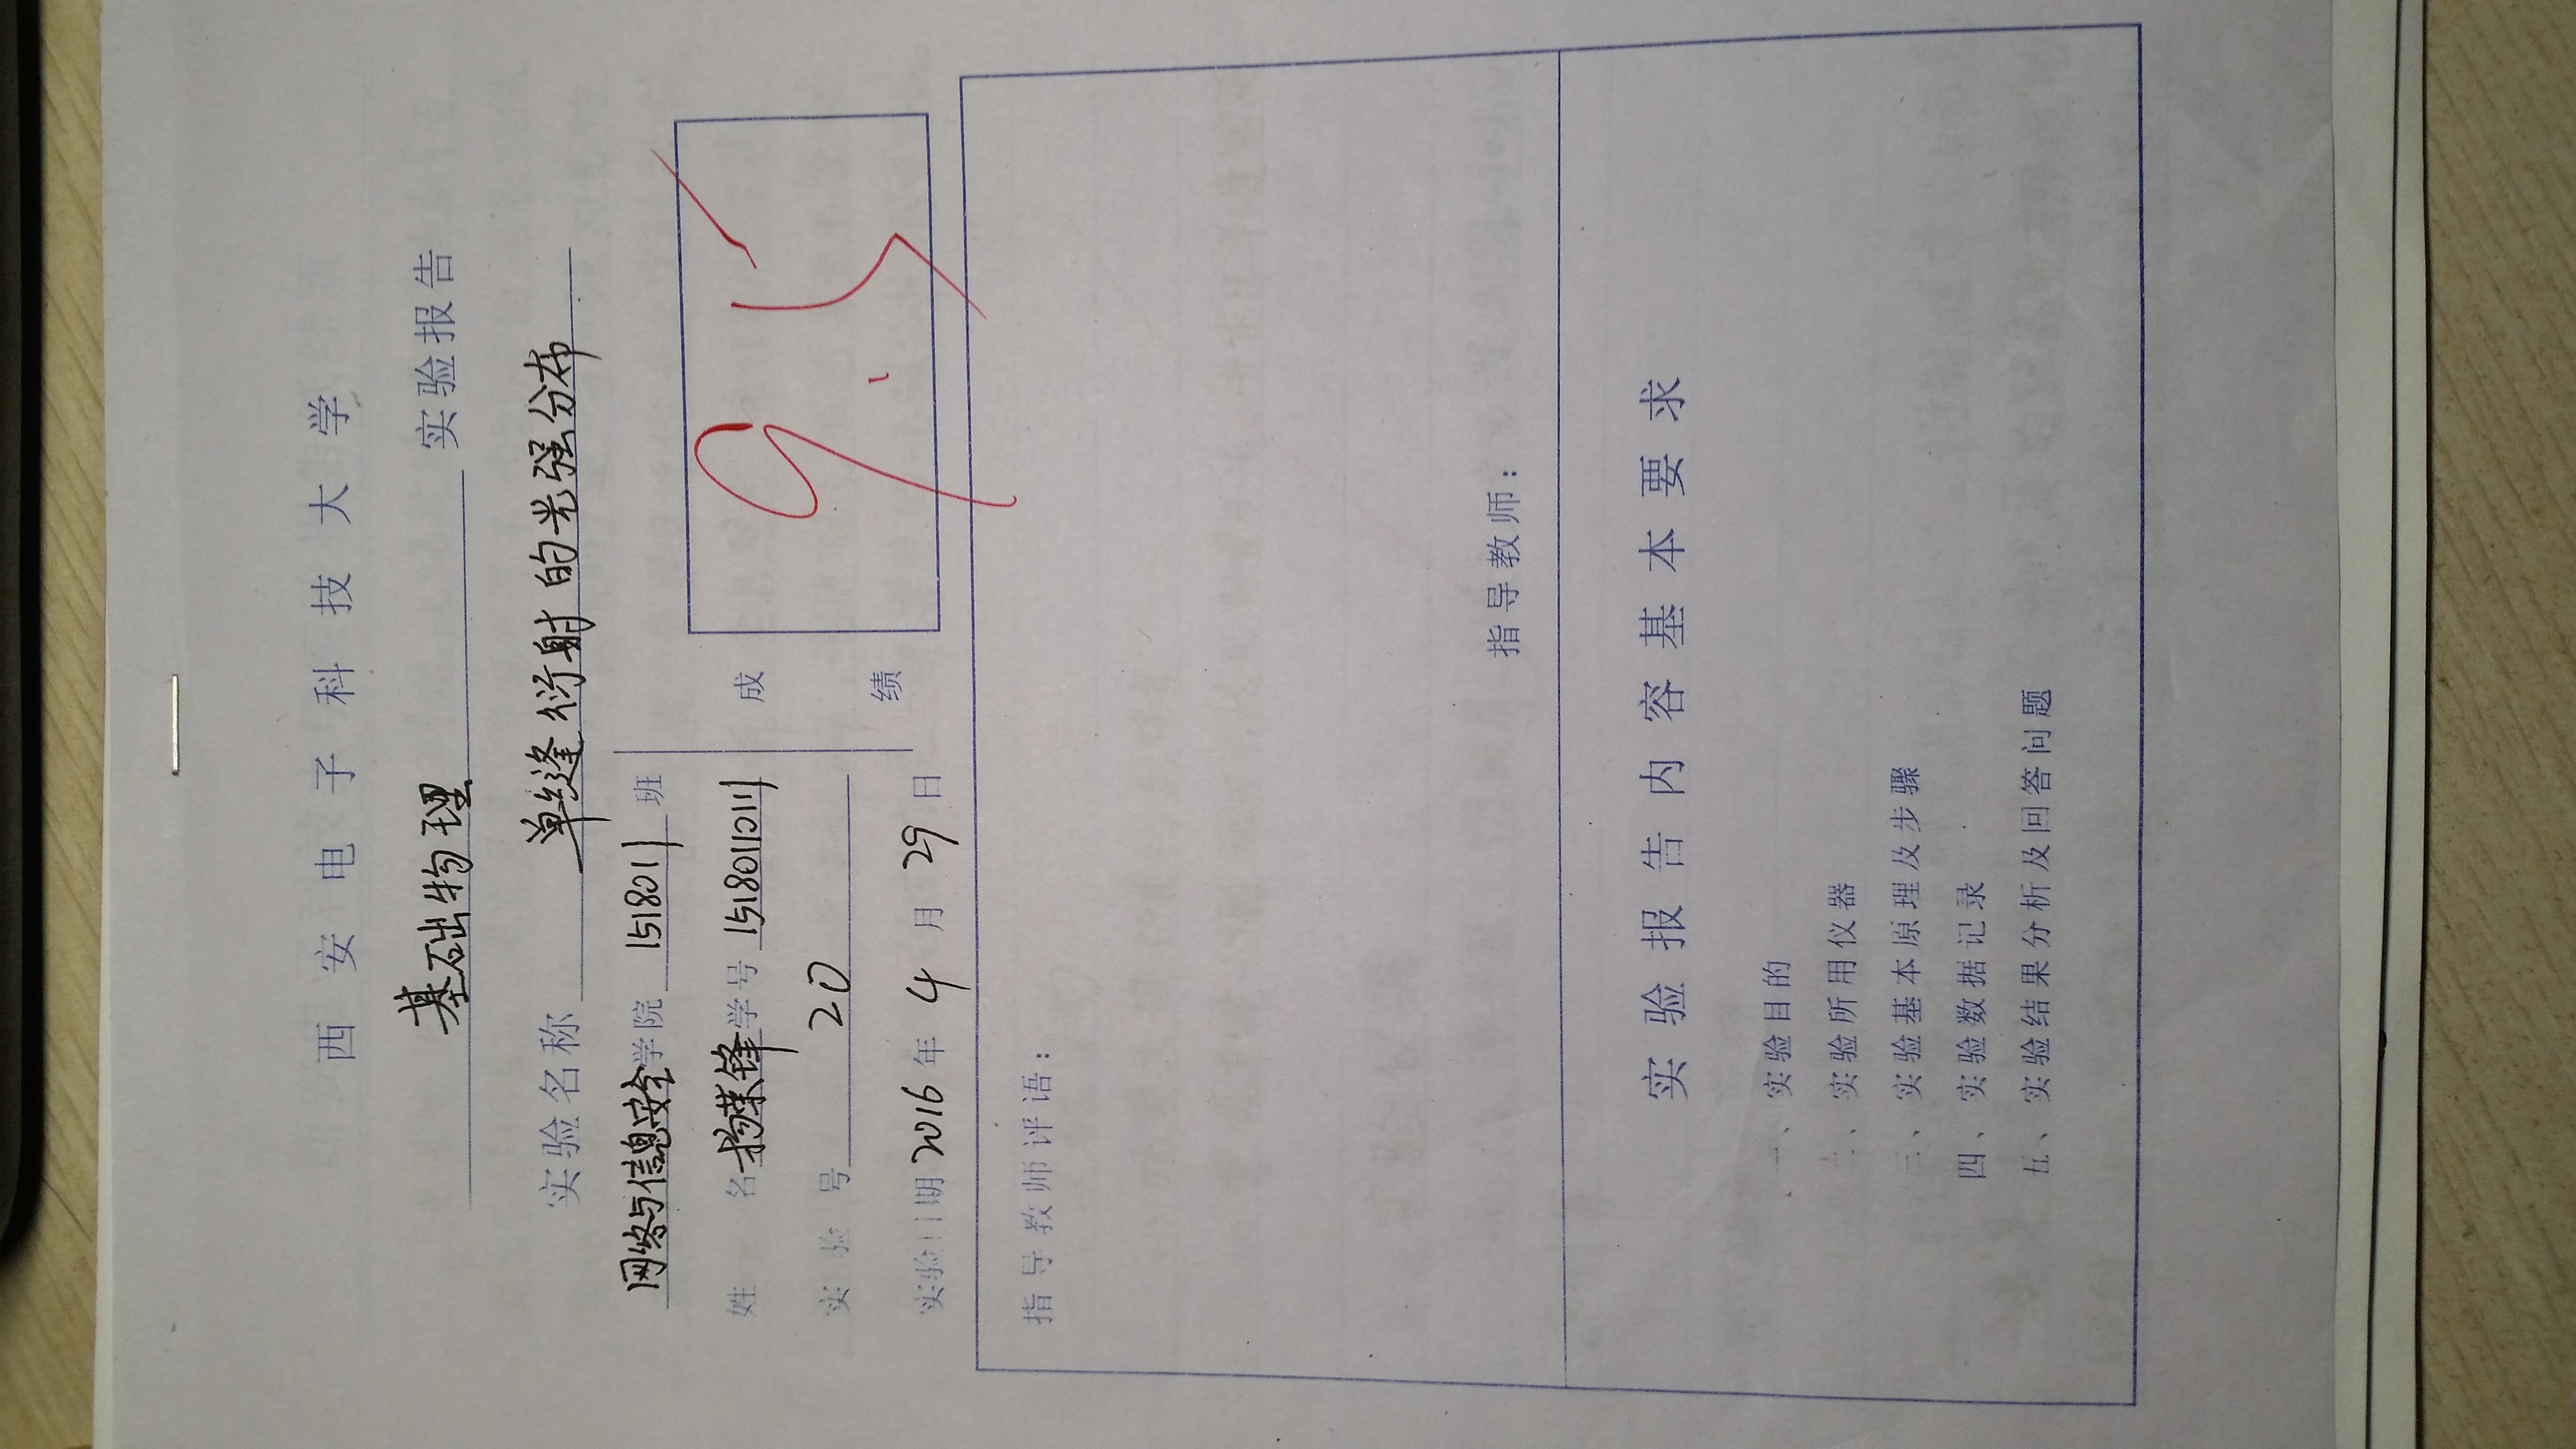 西安电子科技大学
基础物理 实验报告
实验名称 单缝衍射的光强分布
网络与信息安全学院 1518011 班
姓名 杨荣锋 学号 15180110111
实验号 20
实验日期 2016 年 4 月 29 日
成绩 9.5
指导教师评语：
指导教师：
实验报告内容基本要求
一、实验目的
二、实验所用仪器
三、实验基本原理及步骤
四、实验数据记录
五、实验结果分析及回答问题